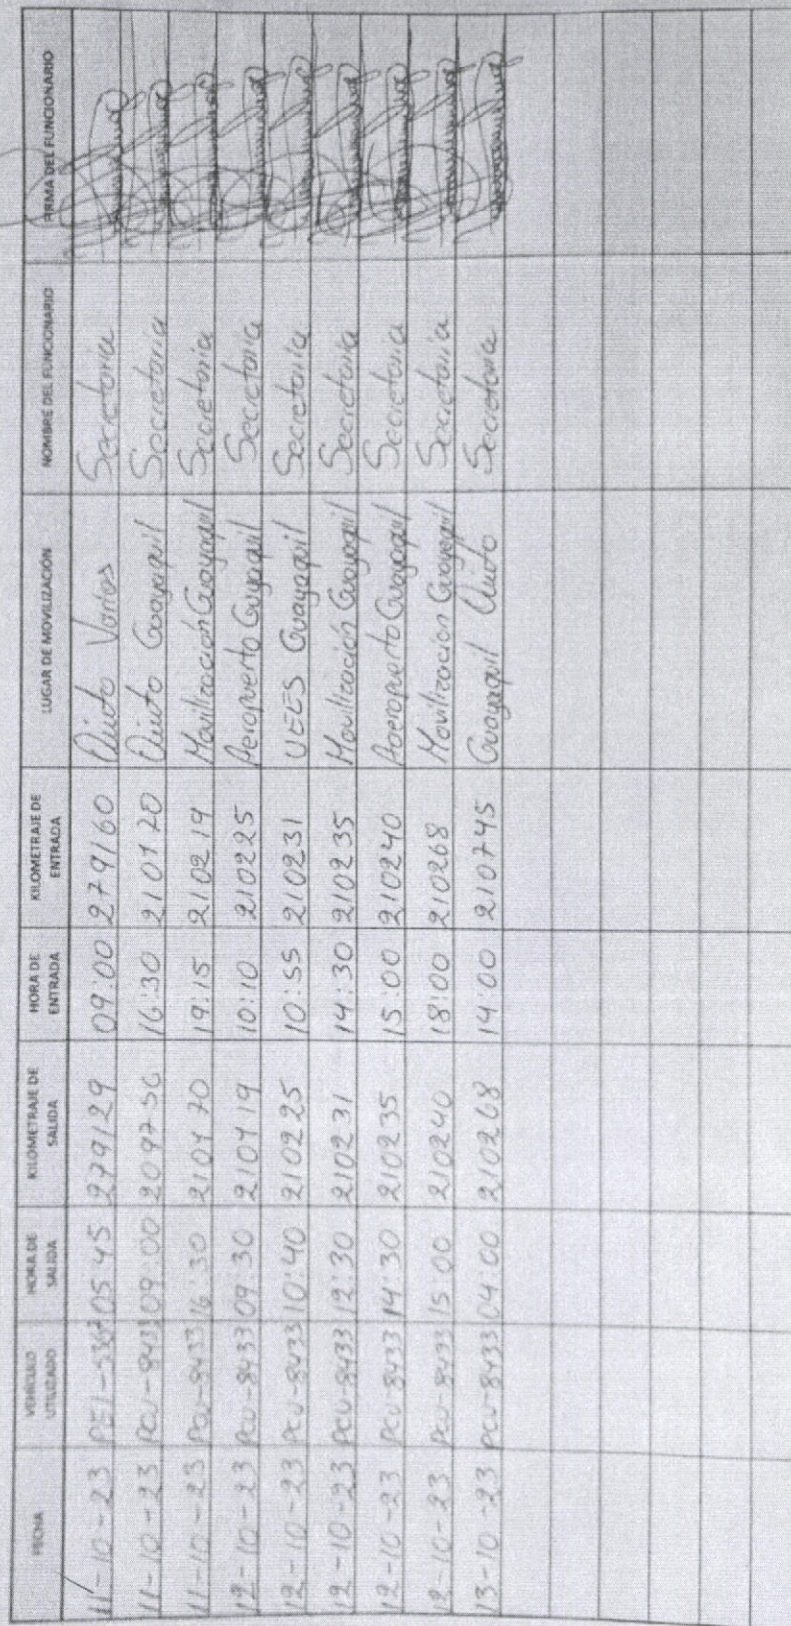 FECHA VEHÍCULO UTILIZADO HORA DE SALIDA KILOMETRAJE DE SALIDA HORA DE ENTRADA KILOMETRAJE DE ENTRADA LUGAR DE MOVILIZACIÓN NOMBRE DEL FUNCIONARIO FIRMA DEL FUNCIONARIO
11-10-23 05 45 279129 09:00 279160 Quito Varios Secretaria
11-10-23 PCU-8433 09:00 16:30 Quito Guayaquil Secretaria
11-10-23 PCU-8433 16:30 19:15 Movilización Guayaquil Secretaria
12-10-23 PCU-8433 09:30 10:10 210225 Aeropuerto Secretaria
12-10-23 PCU-8433 10:40 210225 10:55 210231 UEES Guayaquil Secretaria
12-10-23 PCU-8433 12:30 210231 14:30 210235 Movilización Guayaquil Secretaria
12-10-23 PCU-8433 14:30 210235 15:00 210240 Guayaquil Secretaria
12-10-23 PCU-8433 15:00 210240 18:00 210268 Movilización Guayaquil Secretaria
13-10-23 PCU-8433 04:00 210268 14:00 210745 Guayaquil Quito Secretaria